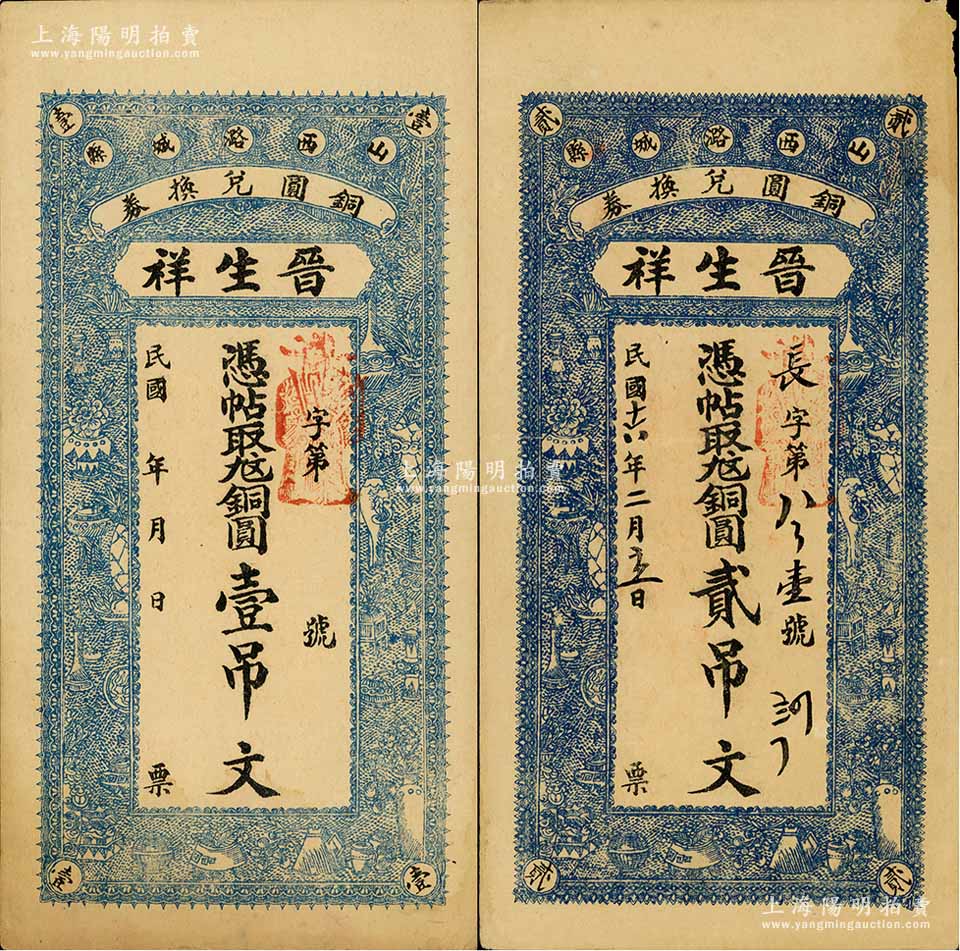 上海陽明拍賣
www.yangmingauction.com
壹
壹
山西潞城縣
銅圓兌換券
晉生祥
字第
號
憑帖取兌銅圓壹吊文
民國 年 月 日
票
壹
壹
貳
貳
山西潞城縣
銅圓兌換券
晉生祥
長字第
壹號
憑帖取兌銅圓貳吊文
民國十六年二月
日
票
貳
貳
上海陽明拍賣
www.yangmingauction.com
上海陽明拍賣
www.yangmingauction.com